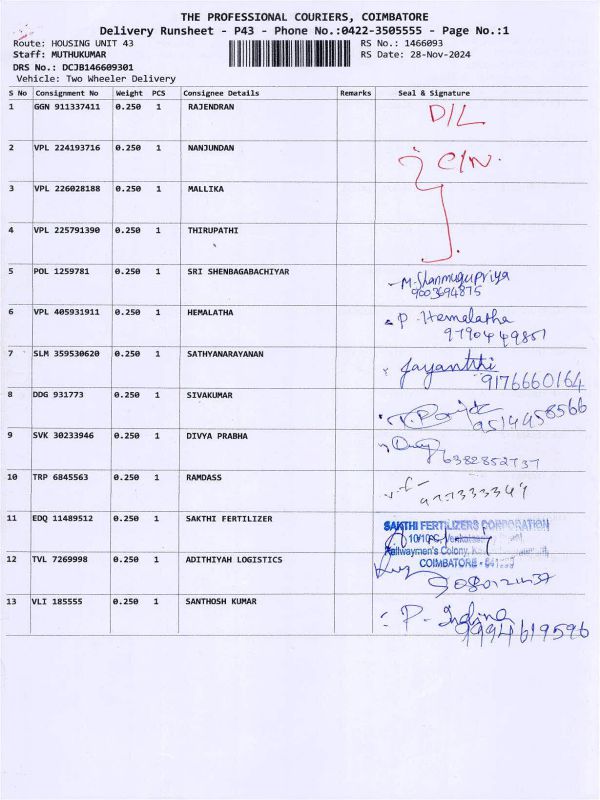 THE PROFESSIONAL COURIERS, COIMBATORE
Delivery Runsheet - P43 - Phone No.:0422-3505555 - Page No.:1
Route: HOUSING UNIT 43 RS No.: 1466093
Staff: MUTHUKUMAR RS Date: 28-Nov-2024
DRS No.: DCJB146609301
Vehicle: Two Wheeler Delivery
S No Consignment No Weight PCS Consignee Details Remarks Seal & Signature
1 GGN 911337411 0.250 1 RAJENDRAN D/L
2 VPL 224193716 0.250 1 NANJUNDAN C/N.
3 VPL 226028188 0.250 1 MALLIKA
4 VPL 225791390 0.250 1 THIRUPATHI
5 POL 1259781 0.250 1 SRI SHENBAGABACHIYAR M. Shanmugupriya
9003694875
6 VPL 405931911 0.250 1 HEMALATHA P. Hemalatha
9790449851
7 SLM 359530620 0.250 1 SATHYANARAYANAN Jayanthi
9176660164
8 DDG 931773 0.250 1 SIVAKUMAR
9514458566
9 SVK 30233946 0.250 1 DIVYA PRABHA
6382852737
10 TRP 6845563 0.250 1 RAMDASS
11 EDQ 11489512 0.250 1 SAKTHI FERTILIZER SAKTHI FERTILIZERS CORPORATION
Railwaymen's Colony,
COIMBATORE -
12 TVL 7269998 0.250 1 ADITHIYAH LOGISTICS
13 VLI 185555 0.250 1 SANTHOSH KUMAR P. Indira
9994619596